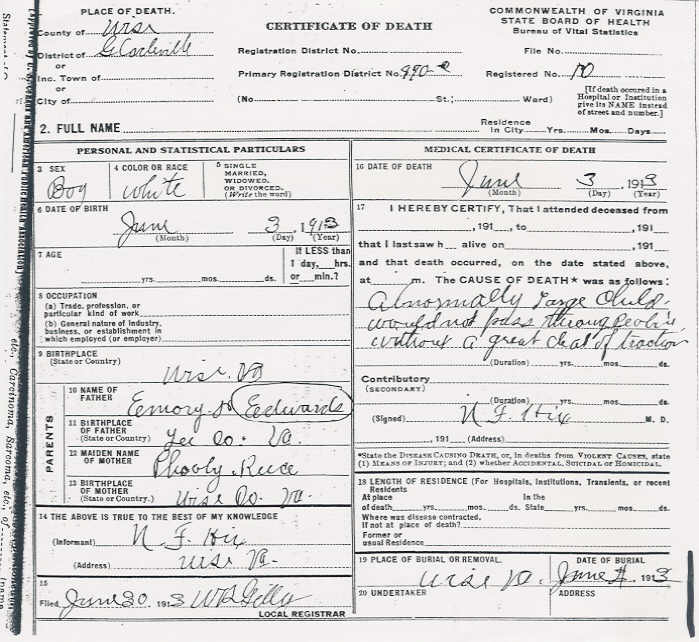 PLACE OF DEATH.
County of Wise
District of
or
Inc. Town of
or
City of
CERTIFICATE OF DEATH
COMMONWEALTH OF VIRGINIA
STATE BOARD OF HEALTH
Bureau of Vital Statistics
Registration District No.
File No.
Primary Registration District No. 990
Registered No. 10
(No St.; Ward)
[If death occured in a
Hospital or Institution
give its NAME instead
of street and number.]
2. FULL NAME
Residence
In City Yrs. Mos. Days
PERSONAL AND STATISTICAL PARTICULARS
3 SEX
Boy
4 COLOR OR RACE
White
5 SINGLE
MARRIED,
WIDOWED,
OR DIVORCED.
(Write the word)
6 DATE OF BIRTH
June 3 1913
(Month) (Day) (Year)
7 AGE
If LESS than
1 day, hrs.
or min.?
yrs. mos. ds.
8 OCCUPATION
(a) Trade, profession, or
particular kind of work
(b) General nature of industry,
business, or establishment in
which employed (or employer)
9 BIRTHPLACE
(State or Country)
Wise Va
PARENTS
10 NAME OF
FATHER
Emory Edwards
11 BIRTHPLACE
OF FATHER
(State or Country)
Lee Co. Va.
12 MAIDEN NAME
OF MOTHER
Reece
13 BIRTHPLACE
OF MOTHER
(State or Country)
Wise Co. Va.
14 THE ABOVE IS TRUE TO THE BEST OF MY KNOWLEDGE
(Informant) N F Hix
(Address) Wise Va.
15
Filed June 20 1913 W B
LOCAL REGISTRAR
MEDICAL CERTIFICATE OF DEATH
16 DATE OF DEATH
June 3 1913
(Month) (Day) (Year)
17 I HEREBY CERTIFY, That I attended deceased from
, 191 , to , 191
that I last saw h alive on , 191
and that death occurred, on the date stated above,
at m. The CAUSE OF DEATH* was as follows:
Abnormally large Child
would not pass through
without a great deal of traction
(Duration) yrs. mos. ds.
Contributory
(SECONDARY)
(Duration) yrs. mos. ds.
(Signed) N F Hix M. D.
, 191 (Address)
*State the DISEASE CAUSING DEATH, or, in deaths from VIOLENT CAUSES, state
(1) MEANS OF INJURY; and (2) whether ACCIDENTAL, SUICIDAL or HOMICIDAL.
18 LENGTH OF RESIDENCE (For Hospitals, Institutions, Transients, or recent
Residents
At place In the
of death yrs. mos. ds. State yrs. mos. ds.
Where was disease contracted.
If not at place of death?
Former or
usual Residence
19 PLACE OF BURIAL OR REMOVAL.
Wise Va.
DATE OF BURIAL
June 4 1913
20 UNDERTAKER
ADDRESS
etc., Carcinoma, Sarcoma, etc., of